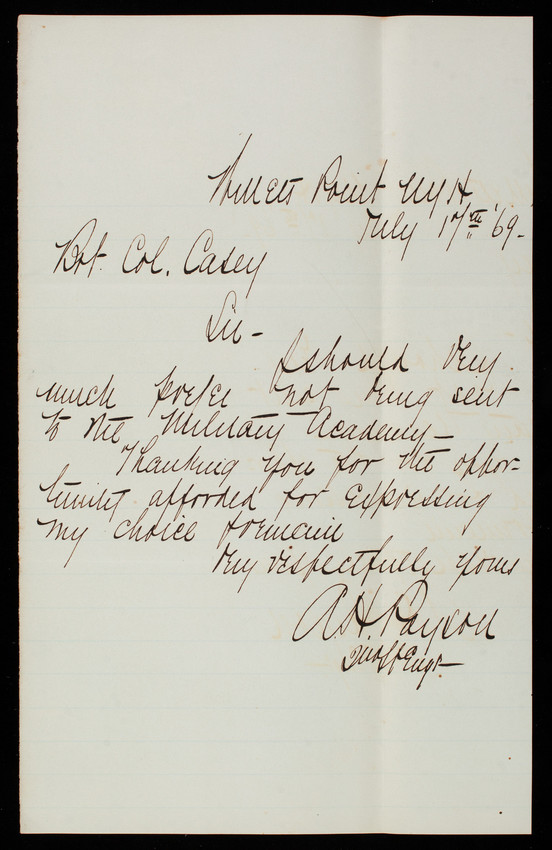 Willets Point NYH
July 17th '69-
Bvt. Col. Casey
Sir -
I should very
much prefer not being sent
to the Military Academy -
Thanking you for the oppor-
tunity afforded for expressing
my choice I remain
Very respectfully yours
A.H. Payson
Engr -